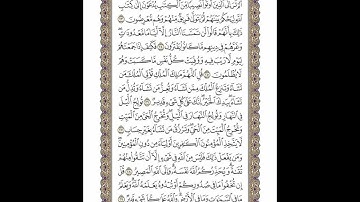 أَلَمْ تَرَ إِلَى الَّذِينَ أُوتُوا نَصِيبًا مِّنَ الْكِتَٰبِ يُدْعَوْنَ إِلَىٰ كِتَٰبِ
اللَّهِ لِيَحْكُمَ بَيْنَهُمْ ثُمَّ يَتَوَلَّىٰ فَرِيقٌ مِّنْهُمْ وَهُم مُّعْرِضُونَ ٢٣
ذَٰلِكَ بِأَنَّهُمْ قَالُوا لَن تَمَسَّنَا النَّارُ إِلَّآ أَيَّامًا مَّعْدُودَٰتٍ
وَغَرَّهُمْ فِي دِينِهِم مَّا كَانُوا يَفْتَرُونَ ٢٤ فَكَيْفَ إِذَا جَمَعْنَٰهُمْ
لِيَوْمٍ لَّا رَيْبَ فِيهِ وَوُفِّيَتْ كُلُّ نَفْسٍ مَّا كَسَبَتْ وَهُمْ
لَا يُظْلَمُونَ ٢٥ قُلِ اللَّهُمَّ مَٰلِكَ الْمُلْكِ تُؤْتِي الْمُلْكَ مَن
تَشَآءُ وَتَنزِعُ الْمُلْكَ مِمَّن تَشَآءُ وَتُعِزُّ مَن تَشَآءُ وَتُذِلُّ مَن
تَشَآءُ بِيَدِكَ الْخَيْرُ إِنَّكَ عَلَىٰ كُلِّ شَيْءٍ قَدِيرٌ ٢٦ تُولِجُ الَّيْلَ
فِي النَّهَارِ وَتُولِجُ النَّهَارَ فِي الَّيْلِ وَتُخْرِجُ الْحَيَّ مِنَ الْمَيِّتِ
وَتُخْرِجُ الْمَيِّتَ مِنَ الْحَيِّ وَتَرْزُقُ مَن تَشَآءُ بِغَيْرِ حِسَابٍ ٢٧
لَّا يَتَّخِذِ الْمُؤْمِنُونَ الْكَٰفِرِينَ أَوْلِيَآءَ مِن دُونِ الْمُؤْمِنِينَ
وَمَن يَفْعَلْ ذَٰلِكَ فَلَيْسَ مِنَ اللَّهِ فِي شَيْءٍ إِلَّآ أَن تَتَّقُوا مِنْهُمْ
تُقَىٰةً وَيُحَذِّرُكُمُ اللَّهُ نَفْسَهُ وَإِلَى اللَّهِ الْمَصِيرُ ٢٨ قُلْ
إِن تُخْفُوا مَا فِي صُدُورِكُمْ أَوْ تُبْدُوهُ يَعْلَمْهُ اللَّهُ وَيَعْلَمُ
مَا فِي السَّمَٰوَٰتِ وَمَا فِي الْأَرْضِ وَاللَّهُ عَلَىٰ كُلِّ شَيْءٍ قَدِيرٌ ٢٩